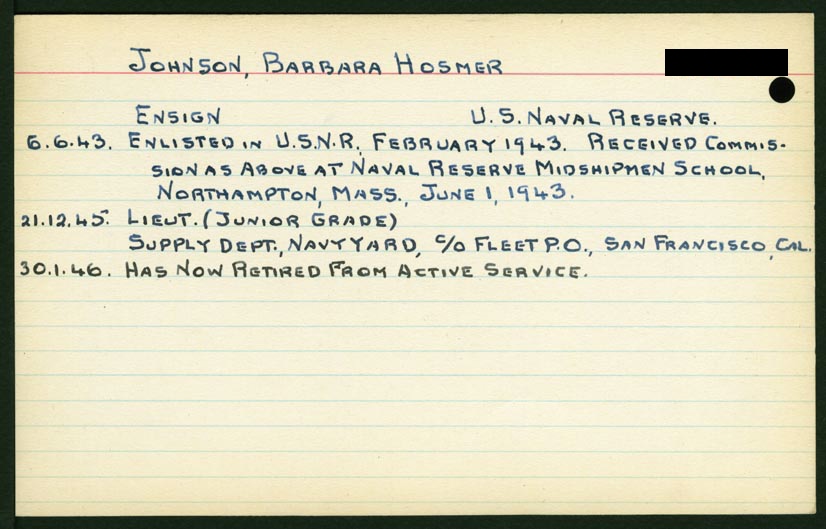 JOHNSON, BARBARA HOSMER
ENSIGN U.S. NAVAL RESERVE.
6.6.43. ENLISTED IN U.S.N.R. FEBRUARY 1943. RECEIVED COMMIS-
SION AS ABOVE AT NAVAL RESERVE MIDSHIPMEN SCHOOL,
NORTHAMPTON, MASS., JUNE 1, 1943.
21.12.45. LIEUT. (JUNIOR GRADE)
SUPPLY DEPT., NAVY YARD, C/O FLEET P.O., SAN FRANCISCO, CAL.
30.1.46. HAS NOW RETIRED FROM ACTIVE SERVICE.